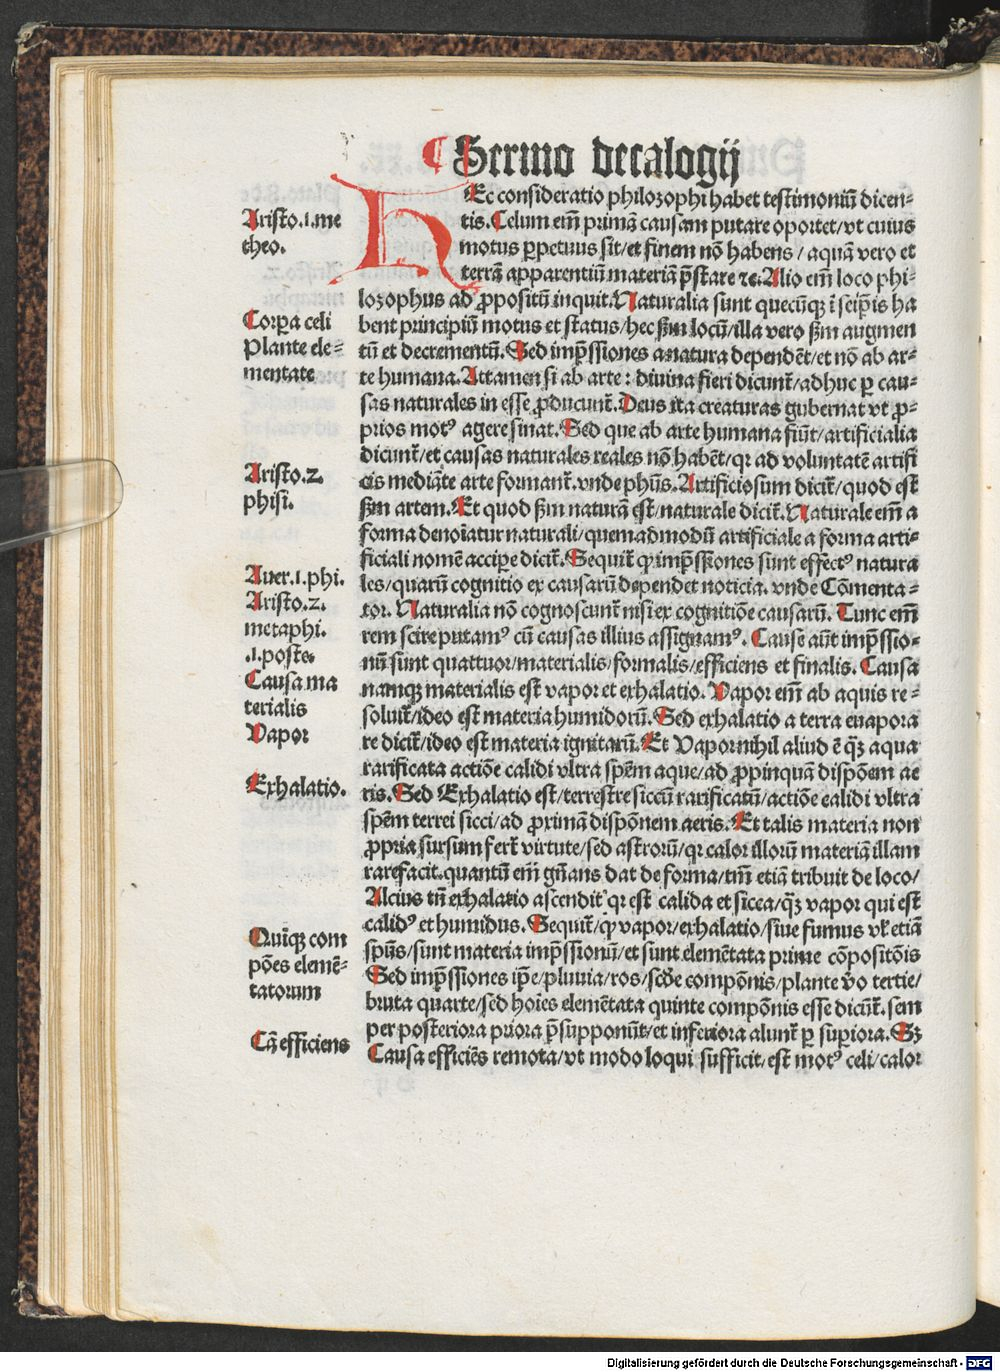 ¶ Sermo decalogij
HEc consideratio philozophi habet testimoniū dicen-
tis. Celum em̄ primā causam putare oportet/vt cuius
motus ꝑpetuus sit/et finem nō habens / aquā vero et
terrā apparentiū materiā p̄stare ⁊c. Alio em̄ loco phi-
lozophus ad ꝓpositū inquit. Naturalia sunt quecūqꝫ ī seip̄is ha
bent principiū motus et status/hec ẜm locū/illa vero ẜm augmen
tū et decrementū. Sed imp̄ssiones a natura dependēt/et nō ab ar-
te humana. Attamen si ab arte : diuina fieri dicunt̄/adhuc ꝑ cau-
sas naturales in esse ꝓducunt̄. Deus ita creaturas gubernat vt ꝓ-
prios motꝰ agere sinat. Sed que ab arte humana fiūt/artificialia
dicunt̄/et causas naturales reales nō habēt/qꝛ ad voluntatē artifi
cis mediāte arte formant̄. vnde phūs. Artificiosum dicit̄/quod est
ẜm artem. Et quod ẜm naturā est/naturale dicit̄. Naturale em̄ a
forma denoīatur naturali/quemadmodū artificiale a forma arti-
ficiali nomē accipe dicit̄. Sequit̄ ꝙ imp̄ssiones sunt effectꝰ natura
les/quarū cognitio ex causarū dependet noticia. vnde Cōmenta-
tor. Naturalia nō cognoscunt̄ nisi ex cognitiōe causarū. Tunc em̄
rem scire putamꝰ cū causas illius assignamꝰ. Cause aūt imp̄ssio-
nū sunt quattuor/materialis/formalis/efficiens et finalis. Causa
namqꝫ materialis est vapor et exhalatio. Vapor em̄ ab aquis re-
soluit̄/ideo est materia humidorū. Sed exhalatio a terra euapora
re dicit̄/ideo est materia ignitarū. Et Vapor nihil aliud ē qꝫ̄ aqua
rarificata actiōe calidi vltra spēm aque/ad ꝓpinquā dispōem ae
ris. Sed Exhalatio est/terrestre siccū rarificatū/actiōe calidi vltra
spēm terrei sicci/ad ꝓximā dispōnem aeris. Et talis materia non
ꝓpria sursum fert̄ virtute/sed astrorū/qꝛ calor illorū materiā illam
rarefacit. quantū em̄ gn̄ans dat de forma/tm̄ etiā tribuit de loco/
Alcius tn̄ exhalatio ascendit qꝛ est calida et sicca/qꝫ̄ vapor qui est
calidꝰ et humidus. Sequit̄/ꝙ vapor/exhalatio/siue fumus vꝉ etiā
spūs/sunt materia imp̄ssionū/et sunt elemētata prime cōpositōis
Sed imp̄ssiones ip̄e/pluuia/ros/scd̄e compōnis/plante v̄o tertie/
bruta quarte/sed hoīes elemētata quinte compōnis esse dicūt̄. sem
per posteriora priora p̄supponūt/et inferiora alunt̄ ꝑ superiora. Sꝫ
Causa efficiēs remota/vt modo loqui sufficit/est motꝰ celi/calor
Aristo.1.me
theo.
Corꝑa celi
Plante ele-
mentate
Aristo.2.
phisi.
Auer.1.phi.
Aristo.2.
metaphi.
.1.poste.
Causa ma
terialis
Vapor
Exhalatio.
Quīqꝫ com
pōes elemē-
tatorum
Cā efficiens
Digitalisierung gefördert durch die Deutsche Forschungsgemeinschaft - DFG